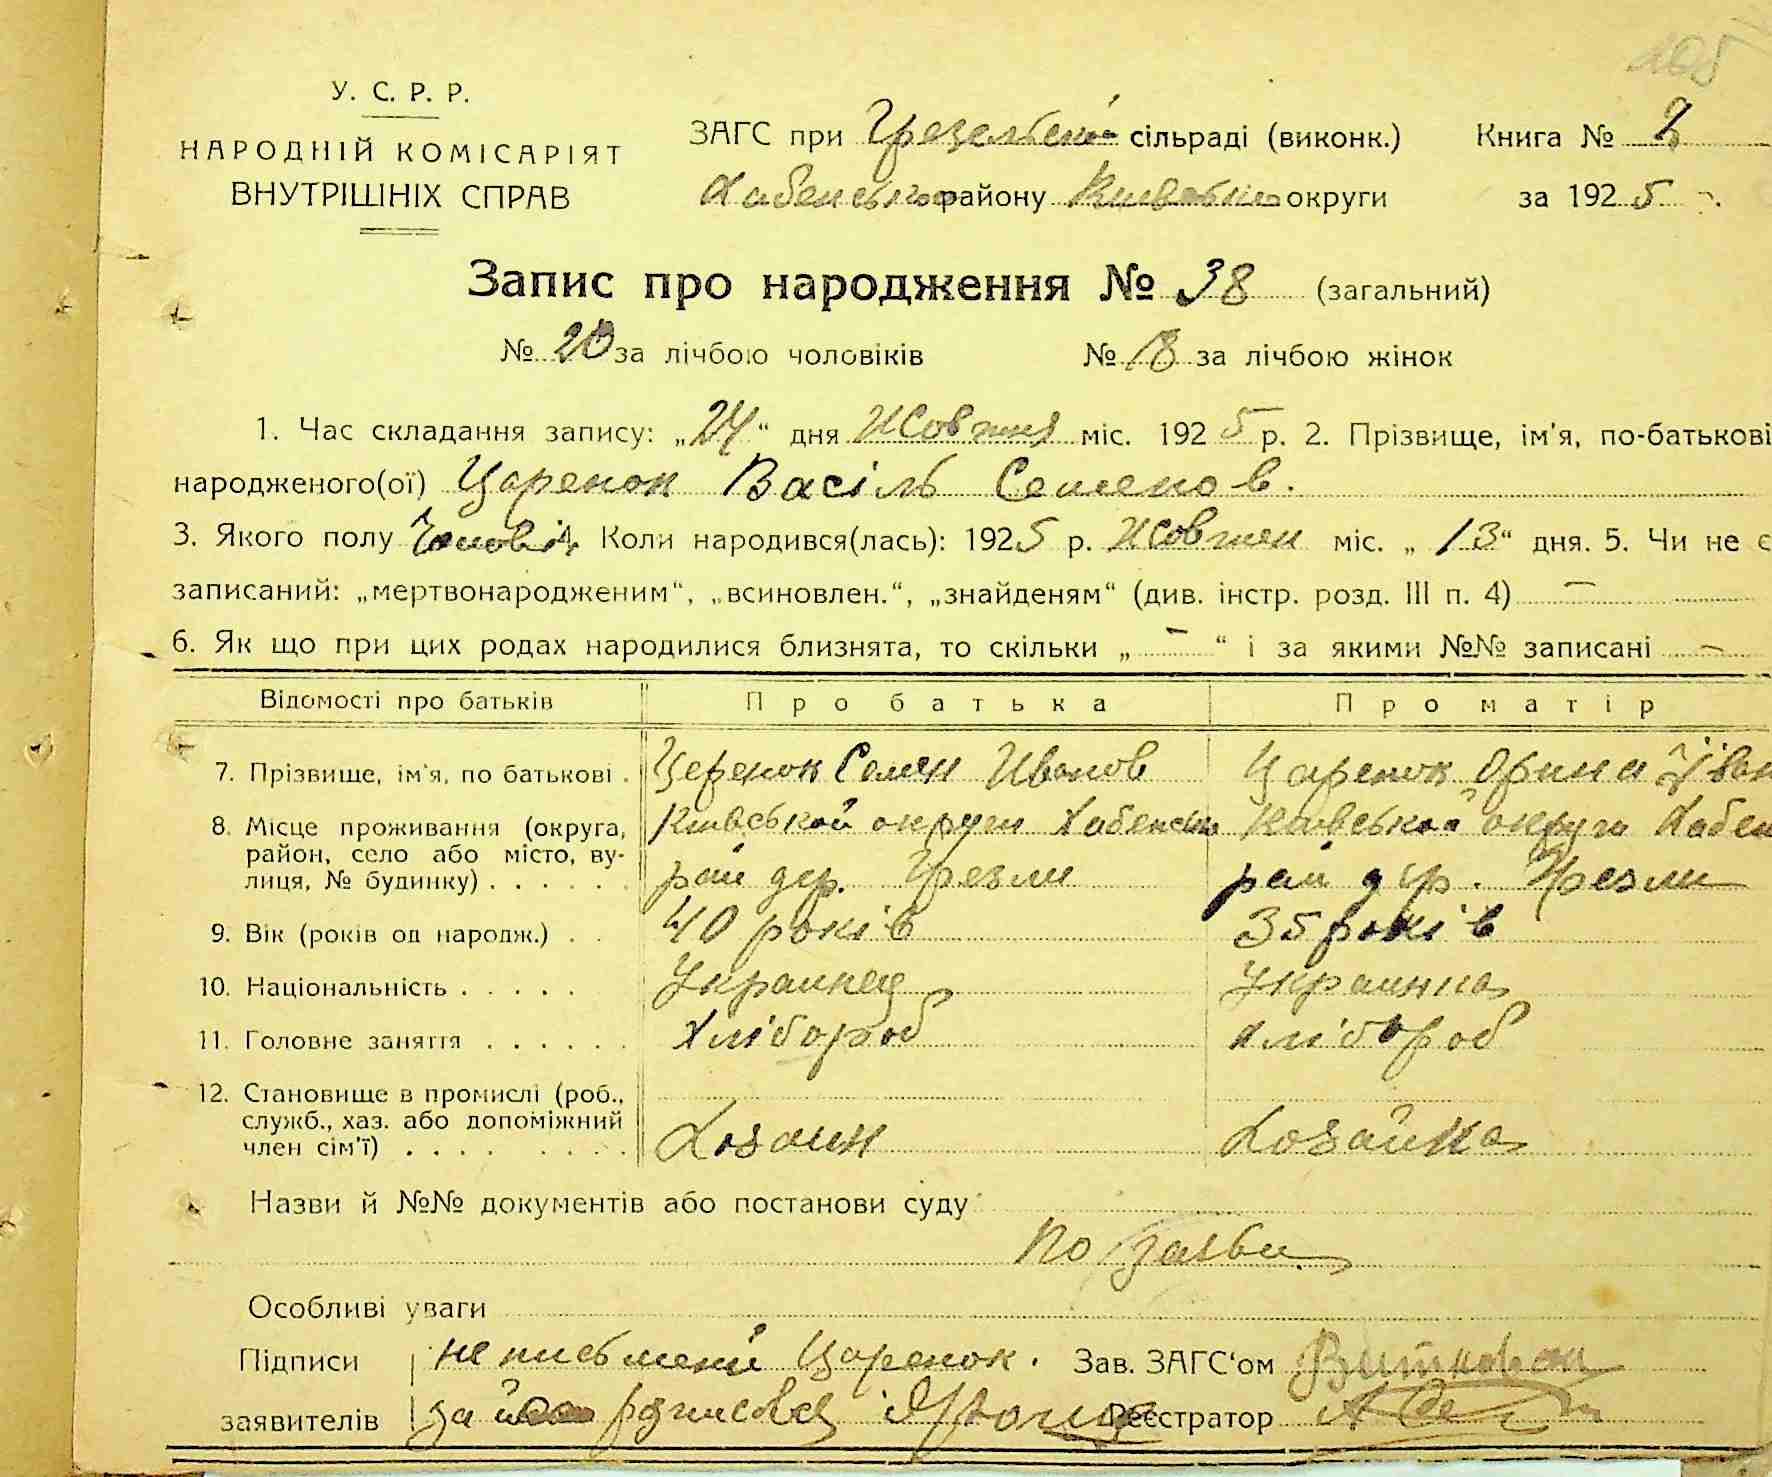 205
У. С. Р. Р.
НАРОДНІЙ КОМІСАРІЯТ
ВНУТРІШНІХ СПРАВ
ЗАГС при сільраді (виконк.) Книга № 2
Хабенського району Київської округи за 1925
Запис про народження № 38 (загальний)
№ 20 за лічбою чоловіків № 18 за лічбою жінок
1. Час складання запису: „24“ дня Жовтня міс. 1925 р. 2. Прізвище, ім'я, по-батькові
народженого(ої) Царенок Васіль Семенов.
3. Якого полу Чоловік 4. Коли народився(лась): 1925 р. Жовтен міс. „13“ дня. 5. Чи не є
записаний: „мертвонародженим“, „всиновлен.“, „знайденям“ (див. інстр. розд. III п. 4) —
6. Як що при цих родах народилися близнята, то скільки „—“ і за якими №№ записані —
Відомості про батьків Про батька Про матір
7. Прізвище, ім'я, по батькові . Церенок Семен Иванов Царенок Орина Іван
8. Місце проживання (округа, район, село або місто, ву-лиця, № будинку) . . . . . . Київської округи Хабенськ рай дер. Грезли Київської округи Хабен рай дер. Грезли
9. Вік (років од народж.) . . 40 років 35 років
10. Національність . . . . . Украинец Украинка
11. Головне заняття . . . . . . Хлібороб Хлібороб
12. Становище в промислі (роб., служб., хаз. або допоміжний член сім'ї) . . . . . . . . Хозаин Хозайка
Назви й №№ документів або постанови суду
по заяви
Особливі уваги
Підписи неписьмений Царенок. Зав. ЗАГС'ом
заявителів за росписався Реєстратор